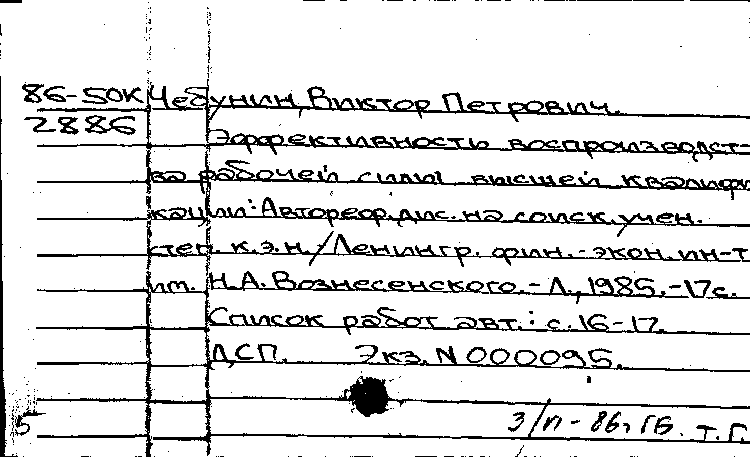 86-50К Чебунин, Виктор Петрович.
2886
Эффективность воспроизводст-
ва рабочей силы высшей квалифи
кации: Автореф. дис. на соиск. учен.
степ. к.э.н. / Ленингр. фин.-экон. ин-т
им. Н.А. Вознесенского. - Л., 1985. - 17с.
Список работ авт.: с. 16-17.
ДСП. Экз. N 000095.
5 3/п - 86, ГБ. т. Г.